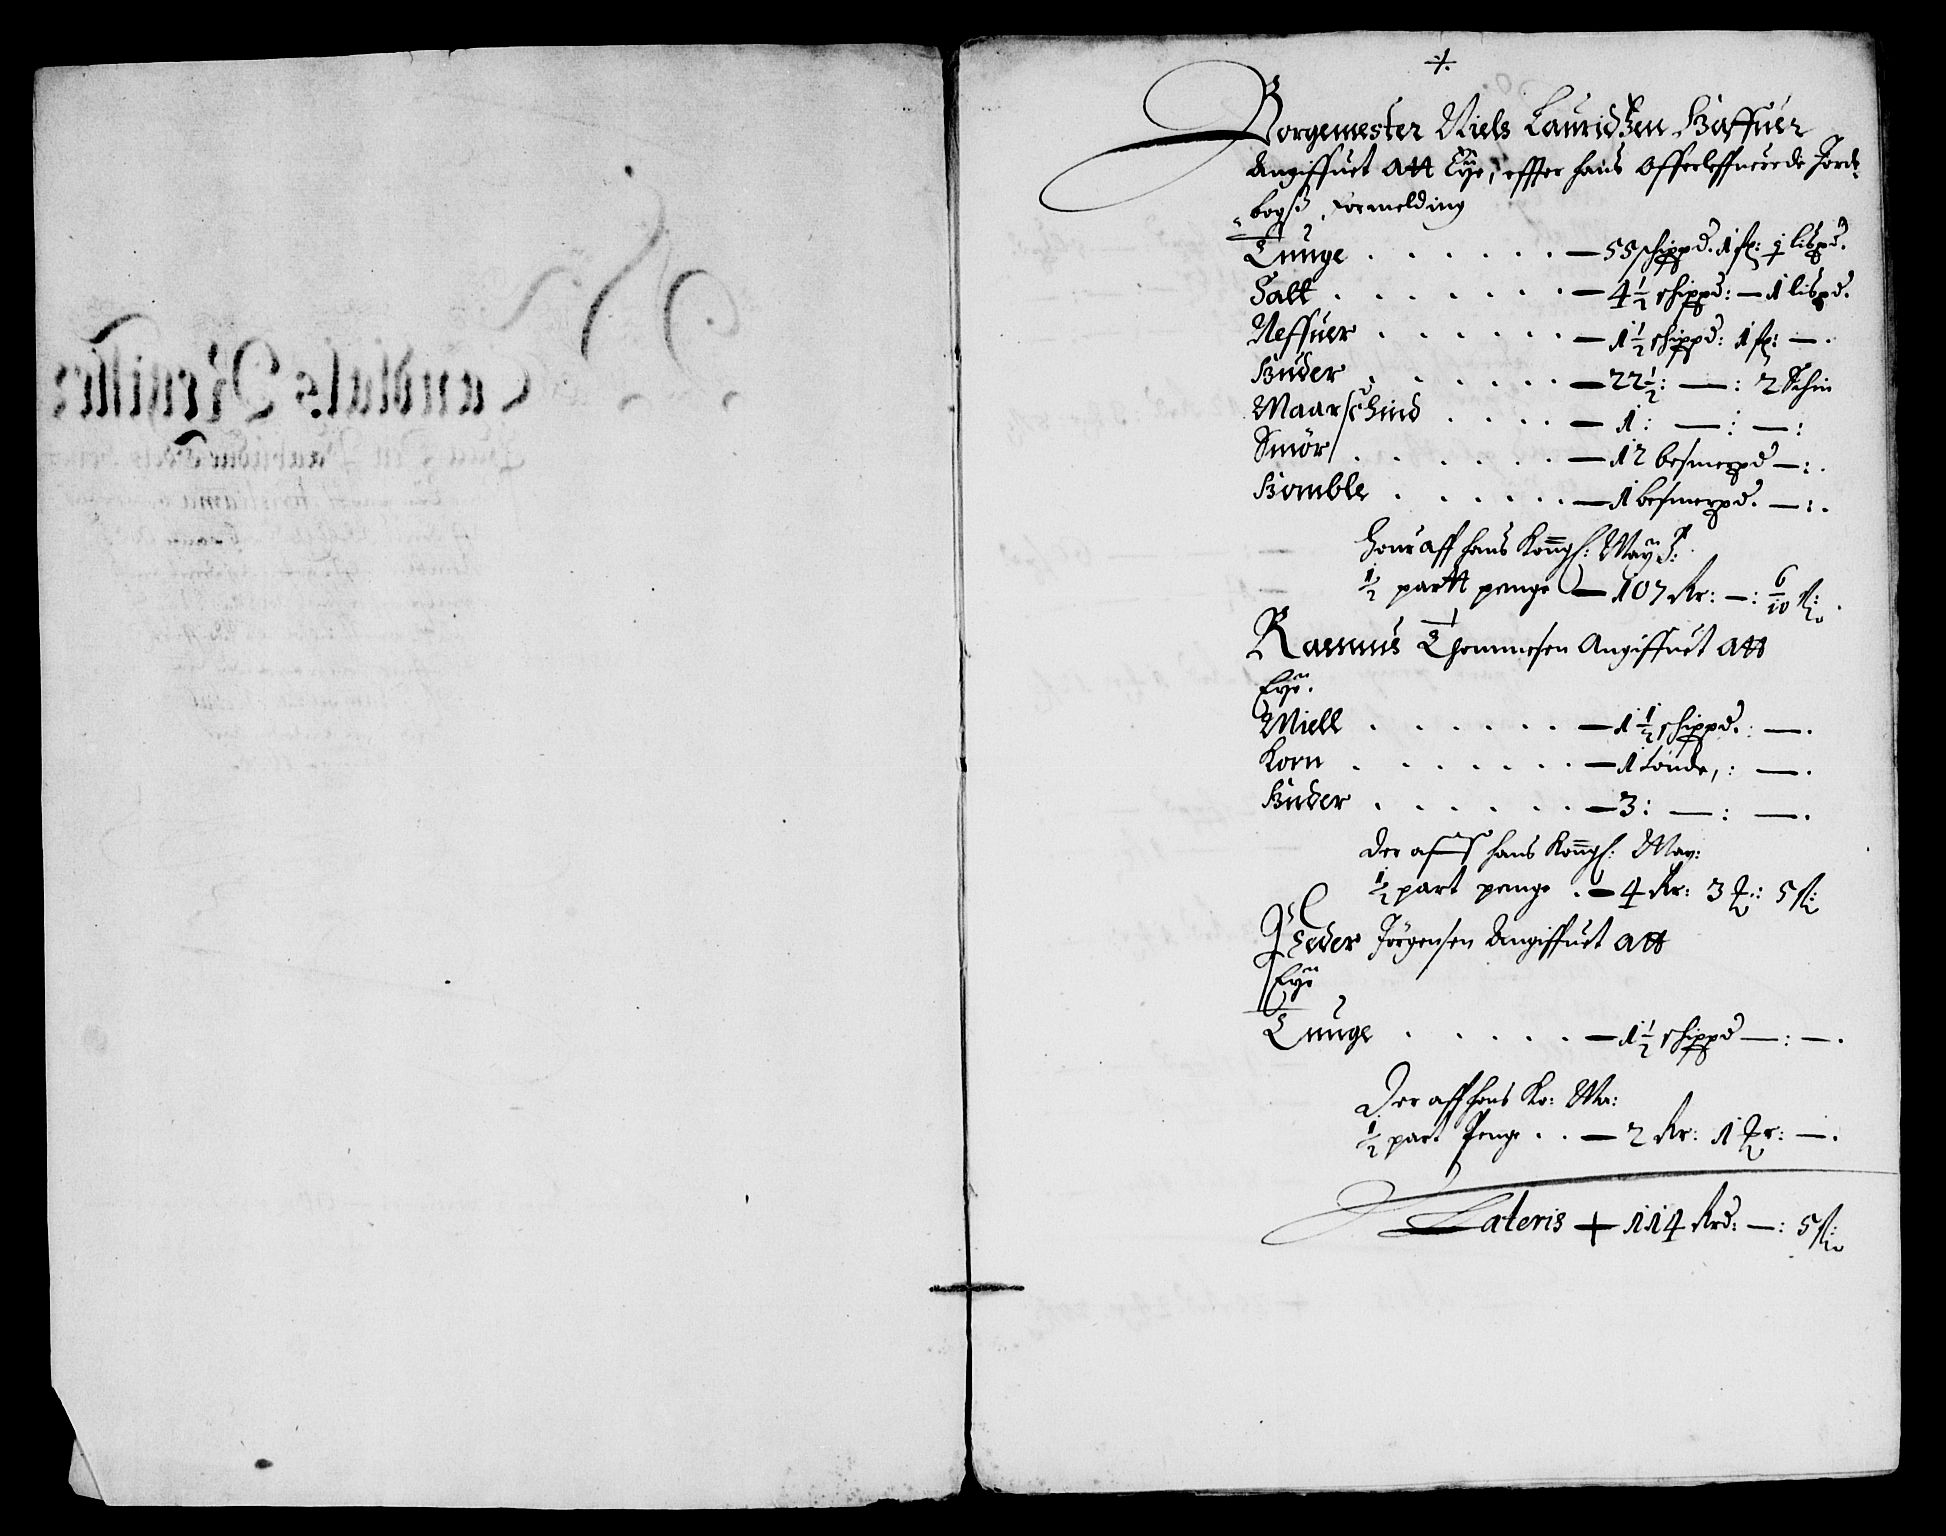 1.
Borgemester Niels Lauridßen Baffuer
Angiffuet att Eÿe, effter hans Offerleffuerede Jorde
bogß formelding
Tunge . . . . . . — 55 schippd. 1 fr: 4 lispd.
Salt . . . . . . — 4½ schippd: — 1 lispd.
Neffuer . . . . . . — 1½ schippd: 1 fr: — .
Huder . . . . . . — 22½: — : 2 Schin
Maarschind . . . . — 1: — : — :
Smör . . . . . . — 12 besmerpd — : .
Bomble . . . . . . — 1 besmerpd. — : .
Huoraff hans Konngl: Maytz:
½ partt penge — 107 Rr: — : 6/10 ß:
Rasmus Thommesen Angiffuet att
Eÿe.
Miell . . . . . . — 1½ schippd. : — .
Korn . . . . . . — 1 tönde, : — .
Huder . . . . . . — 3: — : — .
Der aff hans Konngl: May:
½ part penge . — 4 Rr: 3 Or: 5 ß:
Peder Jörgensen Angiffuet att
Eÿe
Tunge . . . . . . — 1½ schippd — : — .
Der aff hans Ko: Ma:
½ part Penge . . — 2 Rr: 1 Or: — .
Lateris + 114 Rrd: — : 5 ß: